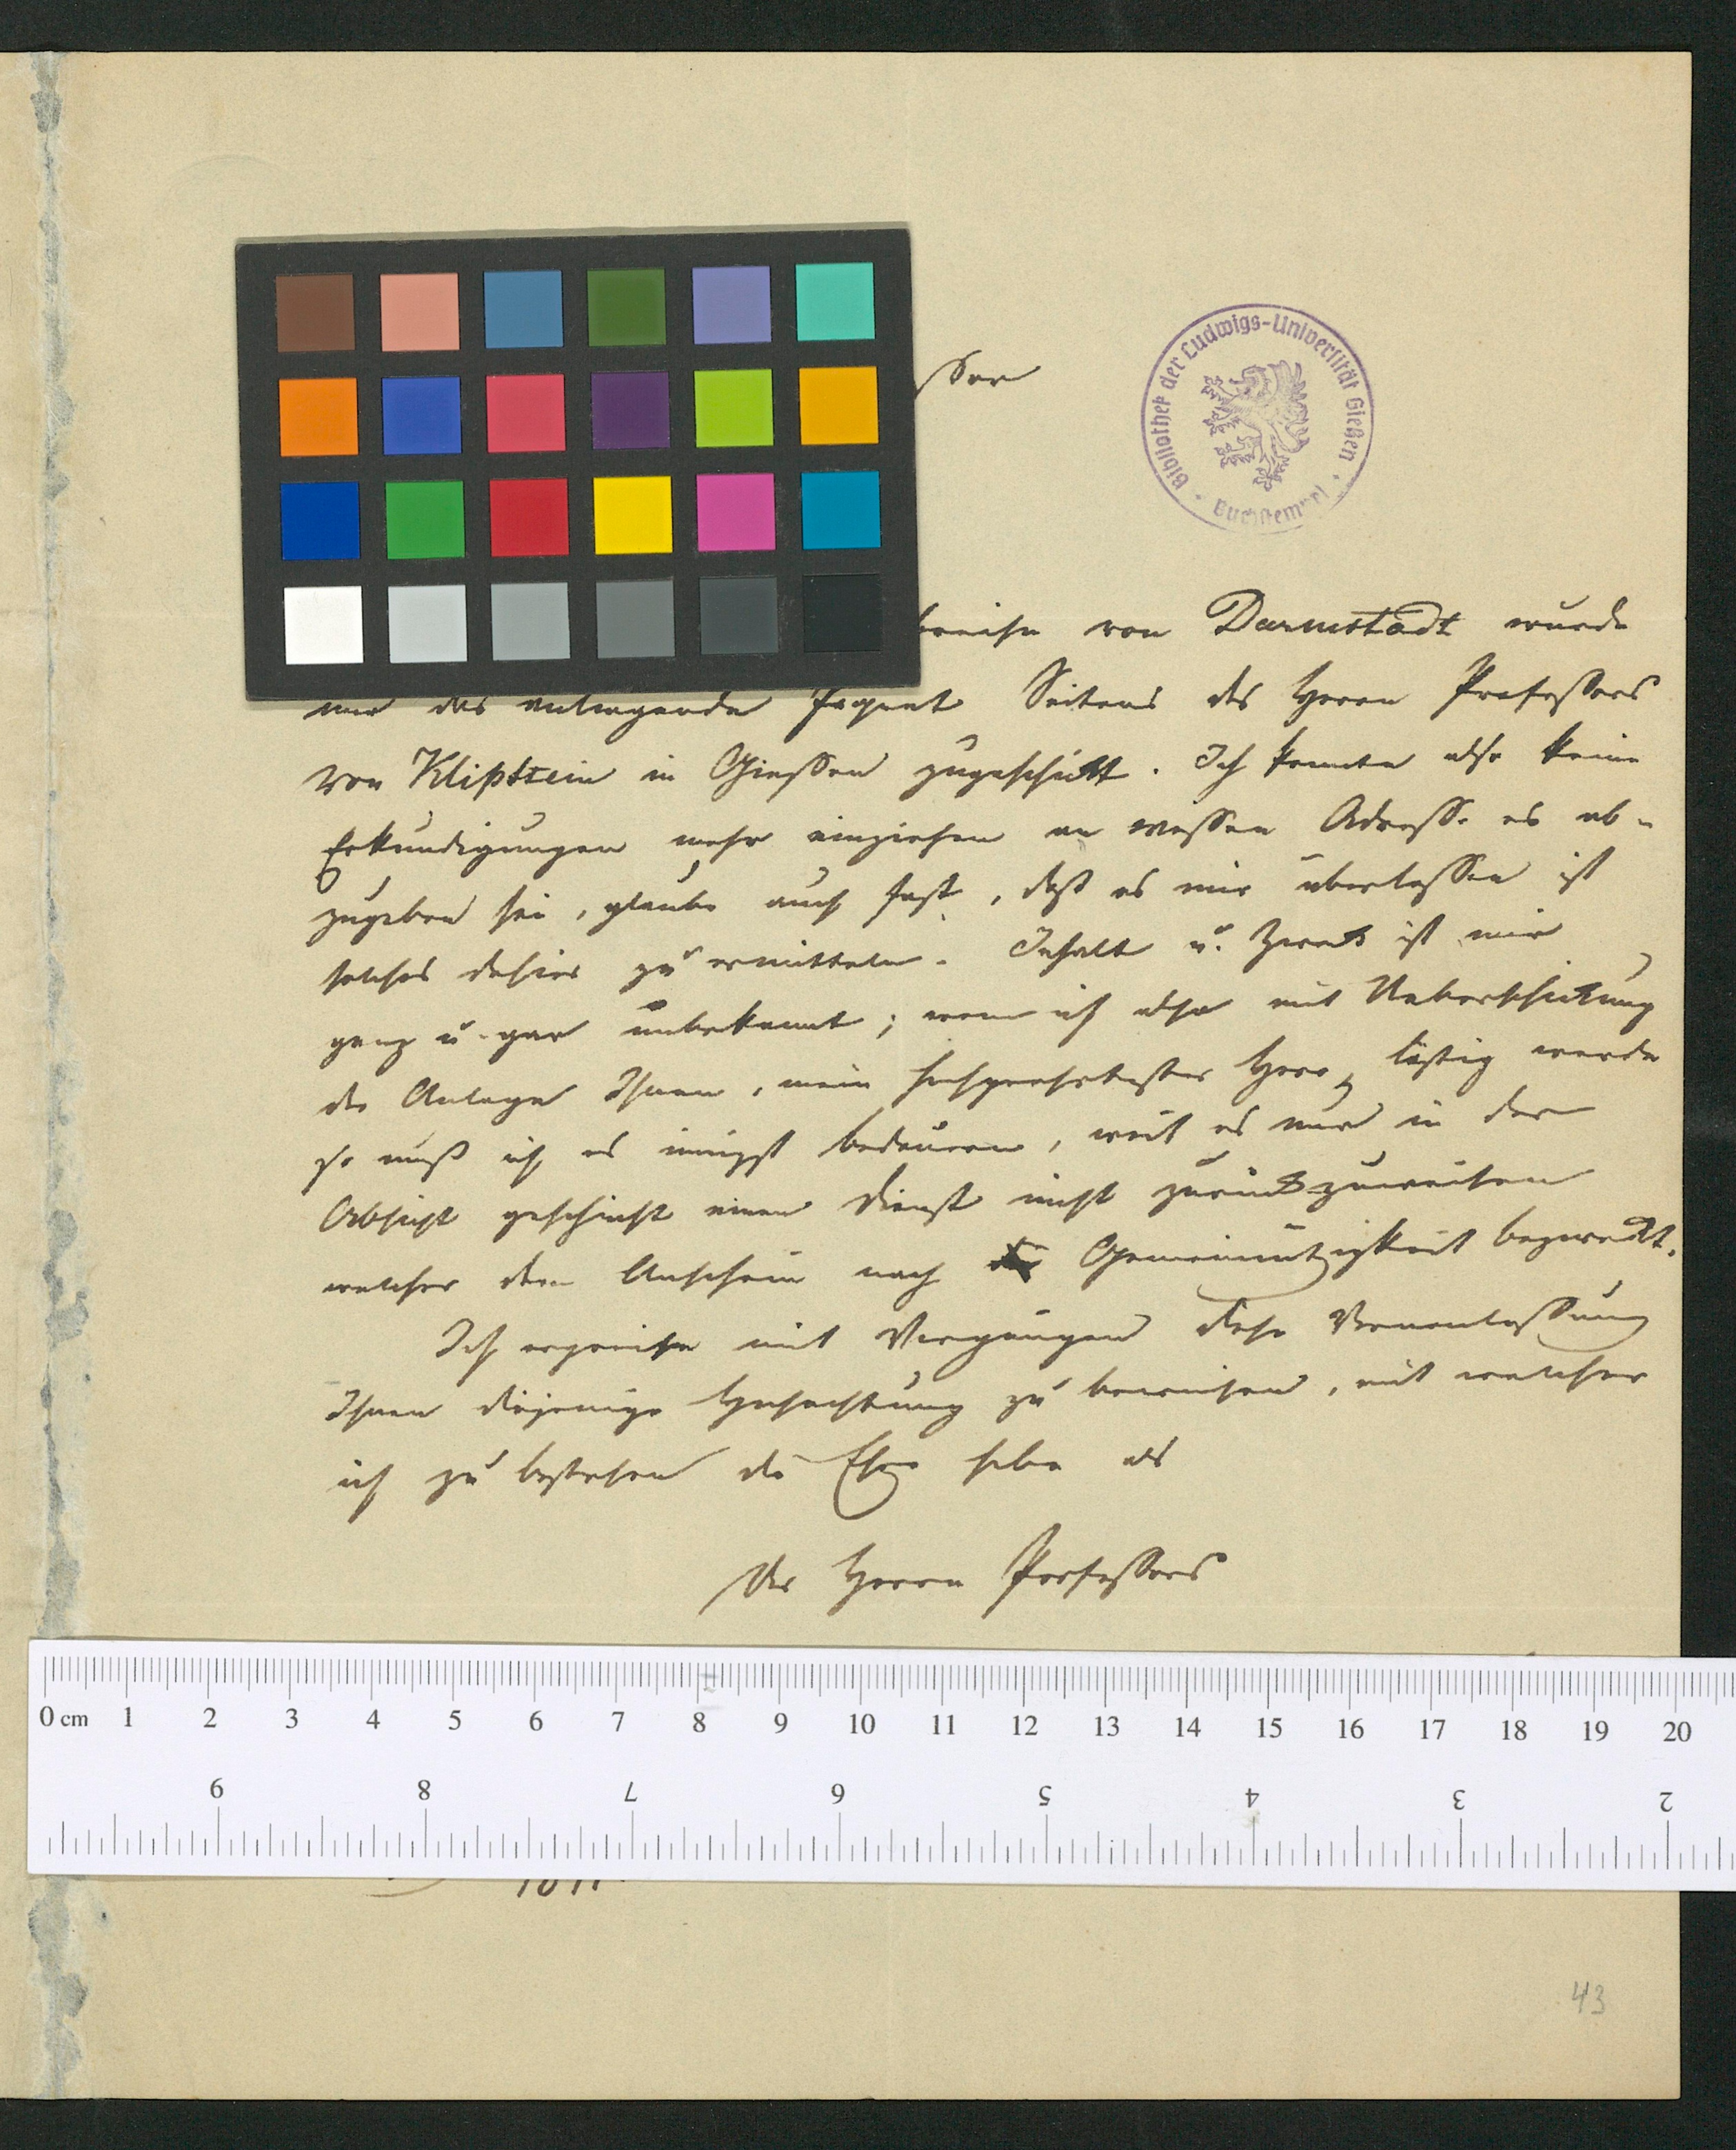 Bibliothek der Ludwigs-Universität Gießen
Buchstempel
von Darmstadt wurde
mir das anliegende Paquet Seitens des Herrn Professors
von Klipstein in Giessen zugeschickt. Ich konnte also keine
Erkundigungen mehr einziehen an wessen Adresse es ab-
zugeben sei, glaube auch fast, daß es mir überlassen ist
solches dahier zu ermitteln. Inhalt u. Zweck ist mir
ganz u. gar unbekannt; wenn ich also mit Ueberschickung
der Anlage Ihnen, mein hochgeehrtester Herr, lästig werde
so muß ich es innigst bedauern, weil es nur in der
Absicht geschieht einen Dienst nicht zurückzuweisen
welcher dem Anschein nach Gemeinnützigkeit bezweckt.
Ich ergreife mit Vergnügen diese Veranlassung
Ihnen diejenige Hochachtung zu beweisen, mit welcher
ich zu bestehen die Ehre habe als
Des Herrn Professors
0 cm 1 2 3 4 5 6 7 8 9 10 11 12 13 14 15 16 17 18 19 20
9 8 7 6 5 4 3 2
43